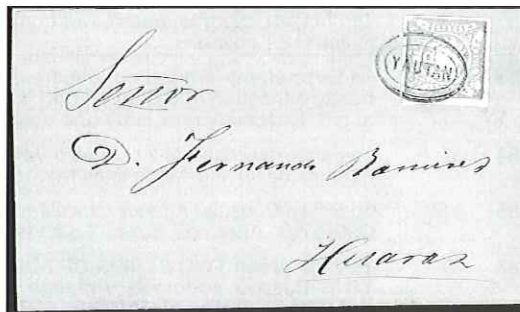 YAUTAN
Señor
D. Fernando Ramirez
Huaraz